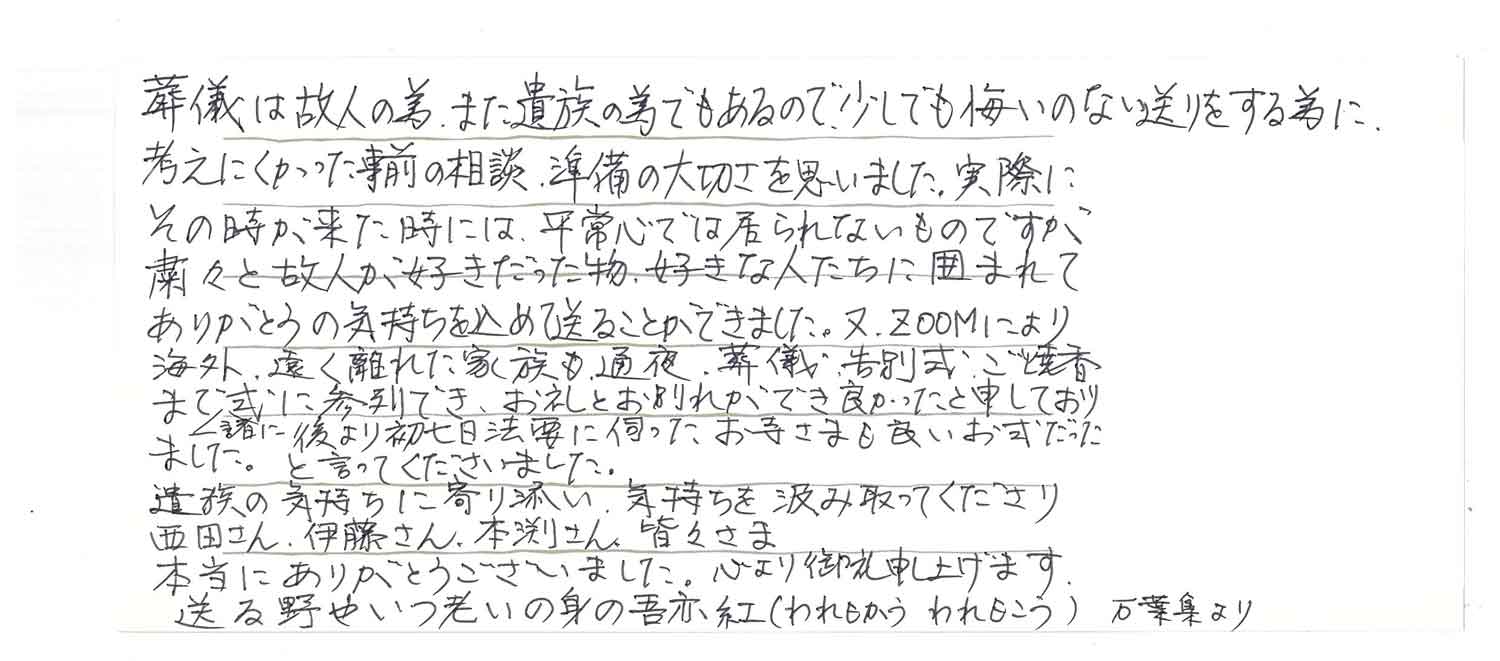 葬儀は故人の為、また遺族の為でもあるので、少しでも悔いのない送りをする為に、
考えにくかった事前の相談、準備の大切さを思いました。実際に
その時が来た時には、平常心では居られないものですが、
粛々と故人が好きだった物、好きな人たちに囲まれて
ありがとうの気持ちを込めて送ることができました。又、ZOOMにより
海外、遠く離れた家族も、通夜、葬儀、告別式、ご焼香
まで式に参列でき、お礼とお別れができ良かったと申しており
ました。一諸に後より初七日法要に伺ったお寺さまも良いお式だった
と言ってくださいました。
遺族の気持ちに寄り添い、気持ちを汲み取ってくださり
西田さん、伊藤さん、本渕さん、皆々さま
本当にありがとうございました。心より御礼申し上げます。
送る野やいつ老いの身の吾亦紅(われもかう われもこう) 万葉集より